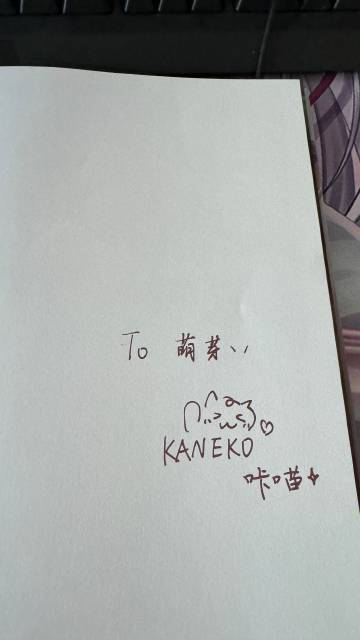 To 萌芽
KANEKO
咔喵